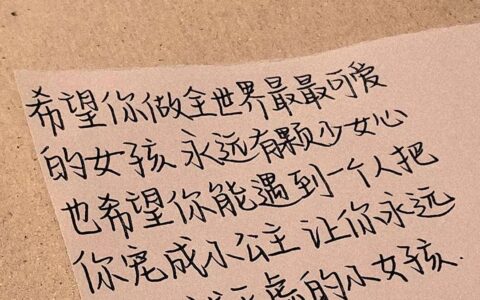 希望你做全世界最最可爱
的女孩 永远有颗少女心
也希望你能遇到一个人把
你宠成小公主 让你永远
无虑的小女孩.